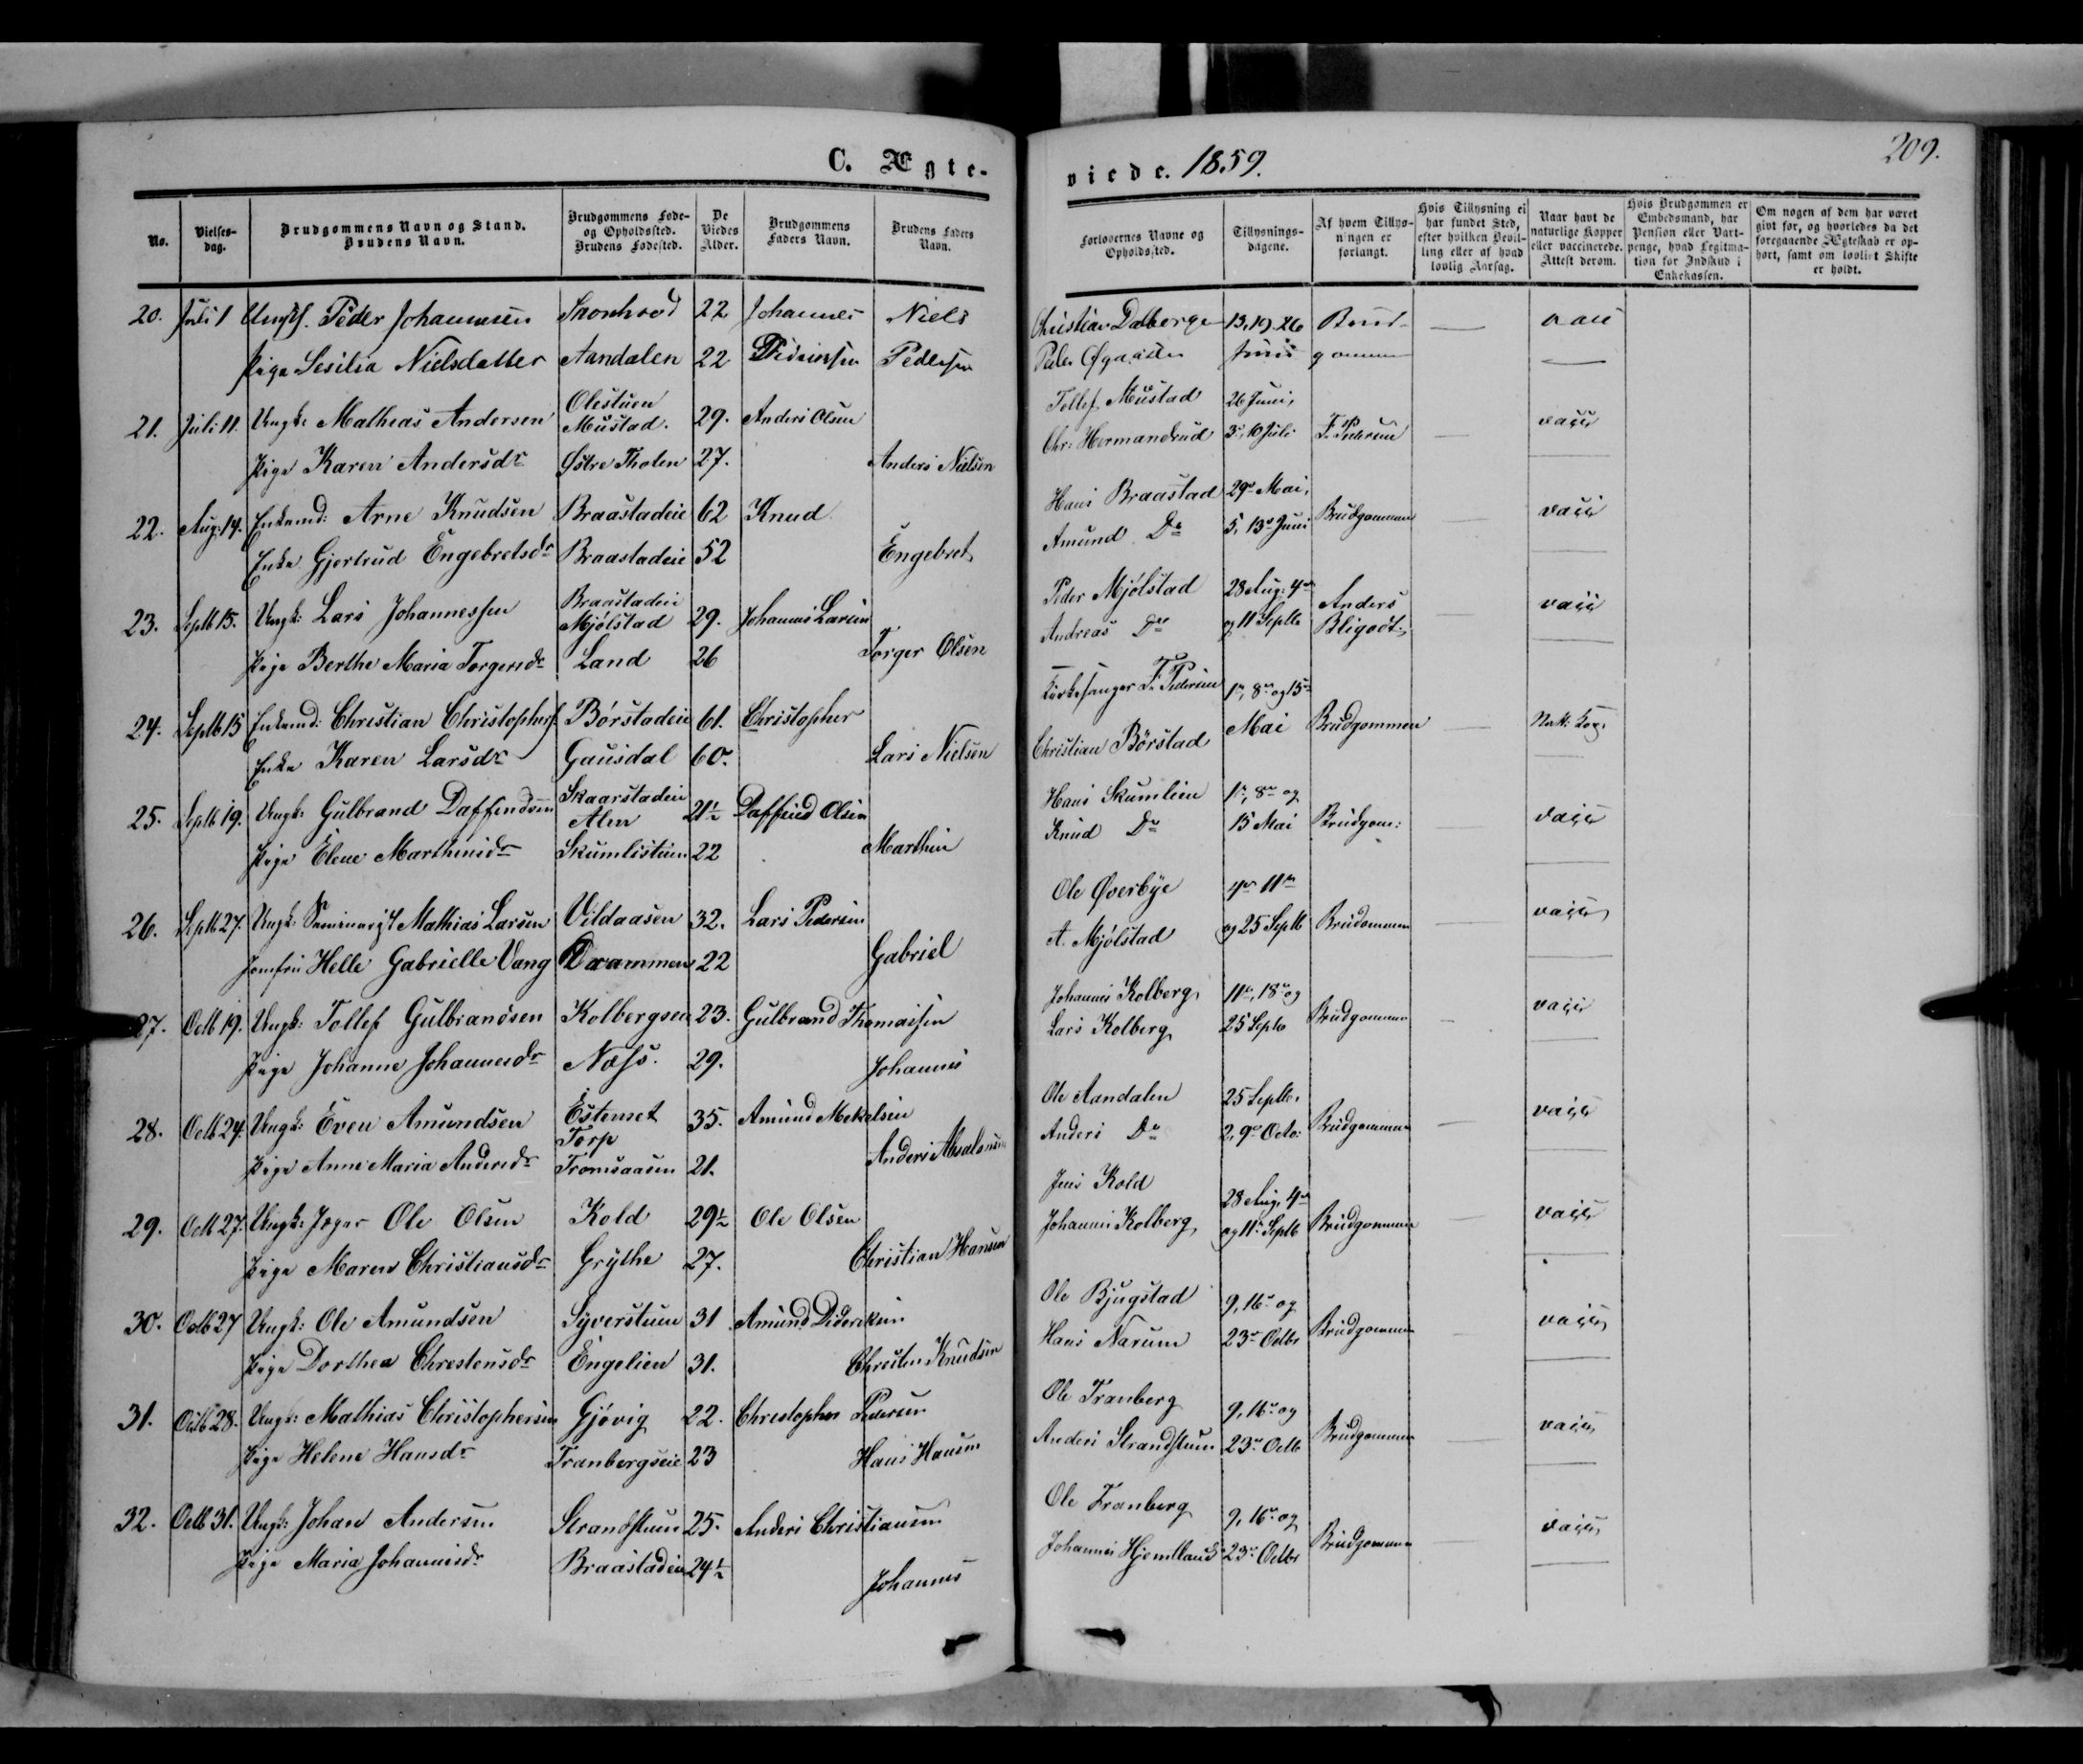 C. Ægte-
viede. 1859.
209.
No.
Vielses-dag.
Brudgommens Navn og Stand. Brudens Navn.
Brudgommens Føde- og Opholdssted. Brudens Fødested.
De Viedes Alder.
Brudgommens Faders Navn.
Brudens Faders Navn.
Forlovernes Navne og Opholdssted.
Tillysnings-dagene.
Af hvem Tillys-ningen er forlangt.
Hvis Tillysning ei har fundet Sted, efter hvilken Bevil-ling eller af hvad lovlig Aarsag.
Naar havt de naturlige Kopper eller vaccinerede. Attest derom.
Hvis Brudgommen er Embedsmand, har Pension eller Vart-penge, hvad Legitima-tion for Indskud i Enkekassen.
Om nogen af dem har været givt før, og hvorledes da det foregaaende Ægteskab er op-hørt, samt om lovligt Skifte er holdt.
20. Juli 1 Peder Johannesen 22 Johannes Niels Christian Dalberge 13, 19, 26 Brud-
Pige Sesilia Nielsdatter Aandalen 22 Pedersen Peder Juni gommen
21. Juli 11. Ungk: Mathias Andersen Olestuen Mustad. 29. Anders Olsen Tollef Mustad 26 Juni, vacc
Pige Karen Andersdr Østre Thoten 27. Anders Nielsen Chr: Hermandrud 3, 10 Juli Pedersen
22. Aug: 14. Enkemd: Arne Knudsen Braastadeie 62 Knud Hans Braastad 29 Mai, Brudgommen vacc
Enke Gjertrud Engebretsdr Braastadeie 52 Engebret Amund Do 5, 13 Juni
23. Septb 15. Ungk: Lars Johannessen Braastadeie Mjølstad 29. Johannes Larsen Peder Mjølstad 28 Aug: 4 Anders vacc
Pige Berthe Maria Torgersdr Land 26 Torger Olsen Andreas Do og 11 Septb Bligodt
24. Septb 15 Enkemd: Christian Christophers Børstadeie 61. Christopher Kirkesanger Pedersen 1, 8 og 15 Brudgommen Natt: Kop.
Enke Karen Larsdr Gausdal 60. Lars Nielsen Christian Børstad Mai
25. Septb 19. Ungk: Gulbrand Daffendsen Skaarstadeie Alm 21½ Daffind Olsen Hans Skumlien 1, 8 og Brudgom: vacc
Pige Elene Marthinisdr Skumlistuen 22 Marthin Knud Do 15 Mai
26. Septb 27. Ungk: Seminarist Mathias Larsen Vildaasen 32. Lars Pedersen Ole Øverbye 4 11 vacc
Jomfru Helle Gabrielle Vang Drammen 22 Gabriel A. Mjølstad og 25 Septb
27. Octb 19. Ungk: Tollef Gulbrandsen Kolbergseie 23. Gulbrand Thomassen Johannes Kolberg 11, 18 og Brudgommen vacc
Pige Johanne Johannesdr Næss. 29. Johannes Lars Kolberg 25 Septb
28. Octb 24. Ungk: Even Amundsen Estenset Torp 35. Amund Mekelsen Ole Aandalen 25 Septb. Brudgommen vacc
Pige Anne Maria Andersdr Tromsaasen 21. Anders Absalonsen Anders Do 2, 9 Octo:
29. Octb 27. Ungk: Jæger Ole Olsen Kold 29½ Ole Olsen Jens Kold 28 Aug, 4 Brudgommen vacc
Pige Maren Christiansdr Grythe 27. Christian Hansen Johannes Kolberg og 11 Septb
30. Octb 27 Ungk: Ole Amundsen Syverstuen 31 Amund Dideriksen Ole Bjugstad 9, 16 og Brudgommen vacc
Pige Dorthea Chrestensdr Engelien 31. Chresten Knudsen Hans Narum 23 Octbr
31. Octb 28. Ungk: Mathias Christophersen Gjøvig 22. Christopher Pedersen Ole Tranberg 9, 16 og Brudgommen vacc
Pige Helene Hansdr Tranbergseie 23 Hans Hansen Anders Strandstuen 23 Octb
32. Octb 31. Ungk: Johan Andersen Strandstuen 25. Anders Christiansen Ole Tranberg 9, 16 og Brudgommen vacc
Pige Maria Johannisdr Braastadeie 24½ Johannes Johannes 23 Octbr